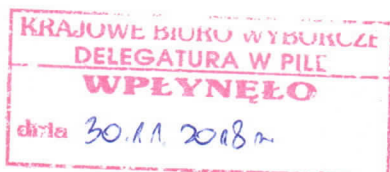 KRAJOWE BIURO WYBORCZE
DELEGATURA W PILE
WPŁYNĘŁO
dnia 30.11.2018 r.